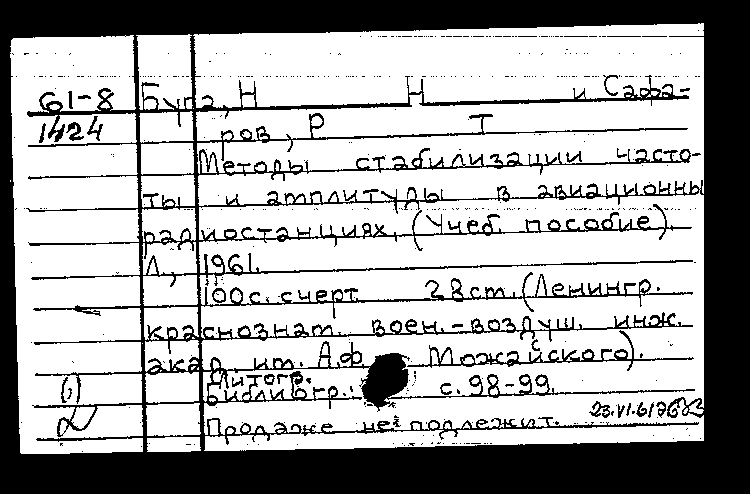 61-8 Буга, Н Н и Сафа-
1424 ров, Р Т
Методы стабилизации часто-
ты и амплитуды в авиационны
радиостанциях, (Учеб. пособие).
Л., 1961.
100с. счерт 28см. (Ленингр.
краснознам. воен.-воздуш. инж.
акад. им. А.Ф Можайского).
Литогр.
Библиогр.: с. 98-99.
Продаже не подлежит. 23.VI.61